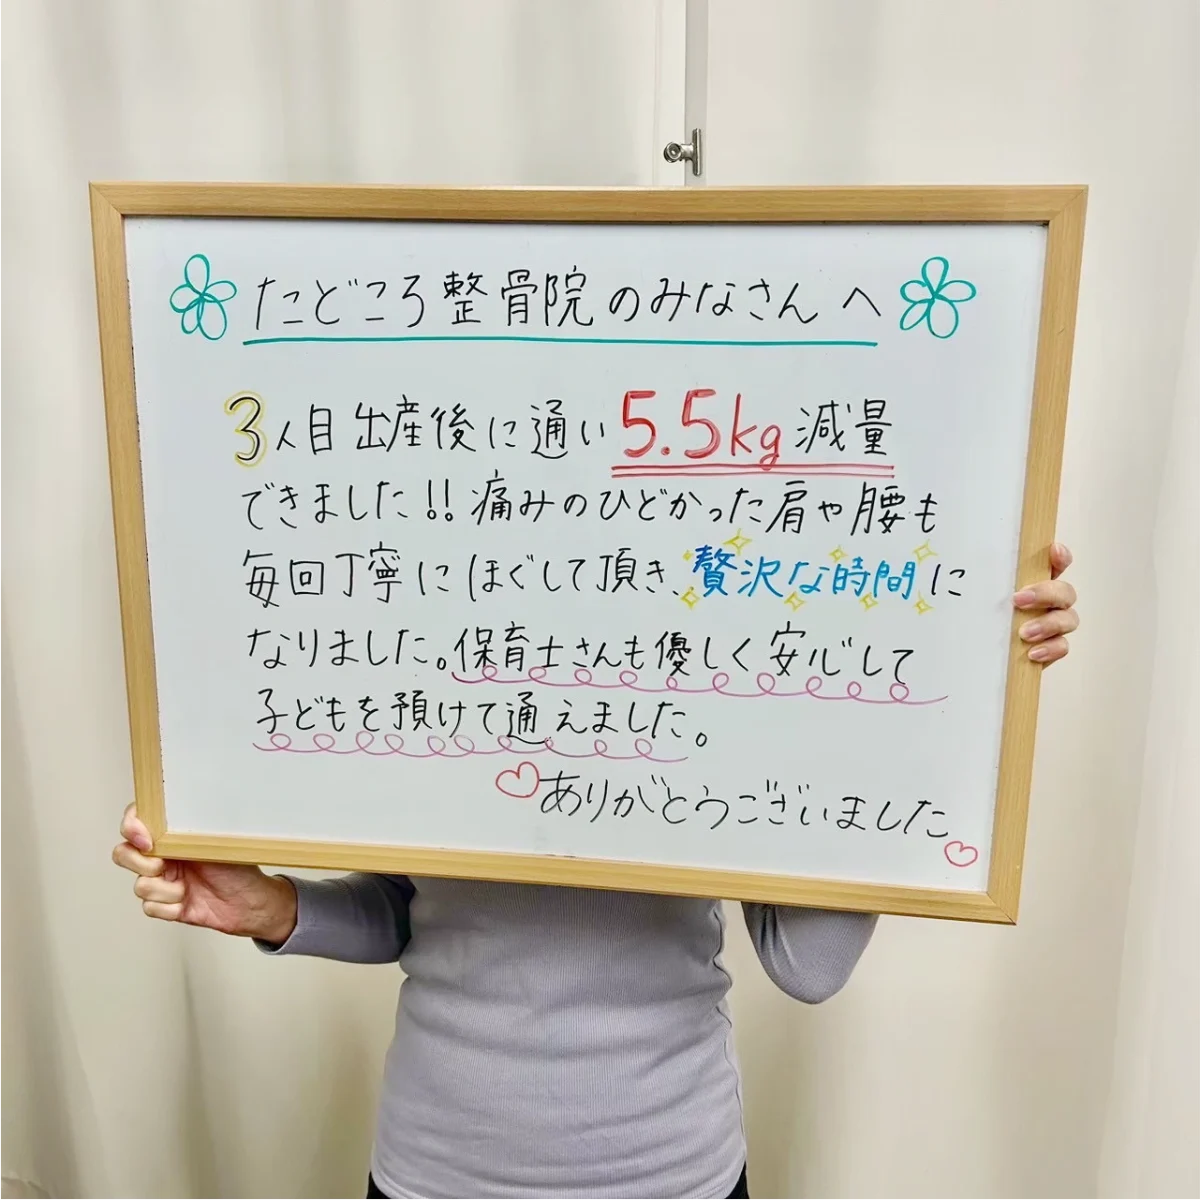 たどころ整骨院のみなさんへ
3人目出産後に通い5.5kg減量
できました!!痛みのひどかった肩や腰も
毎回丁寧にほぐして頂き、贅沢な時間に
なりました。保育士さんも優しく安心して
子どもを預けて通えました。
ありがとうございました